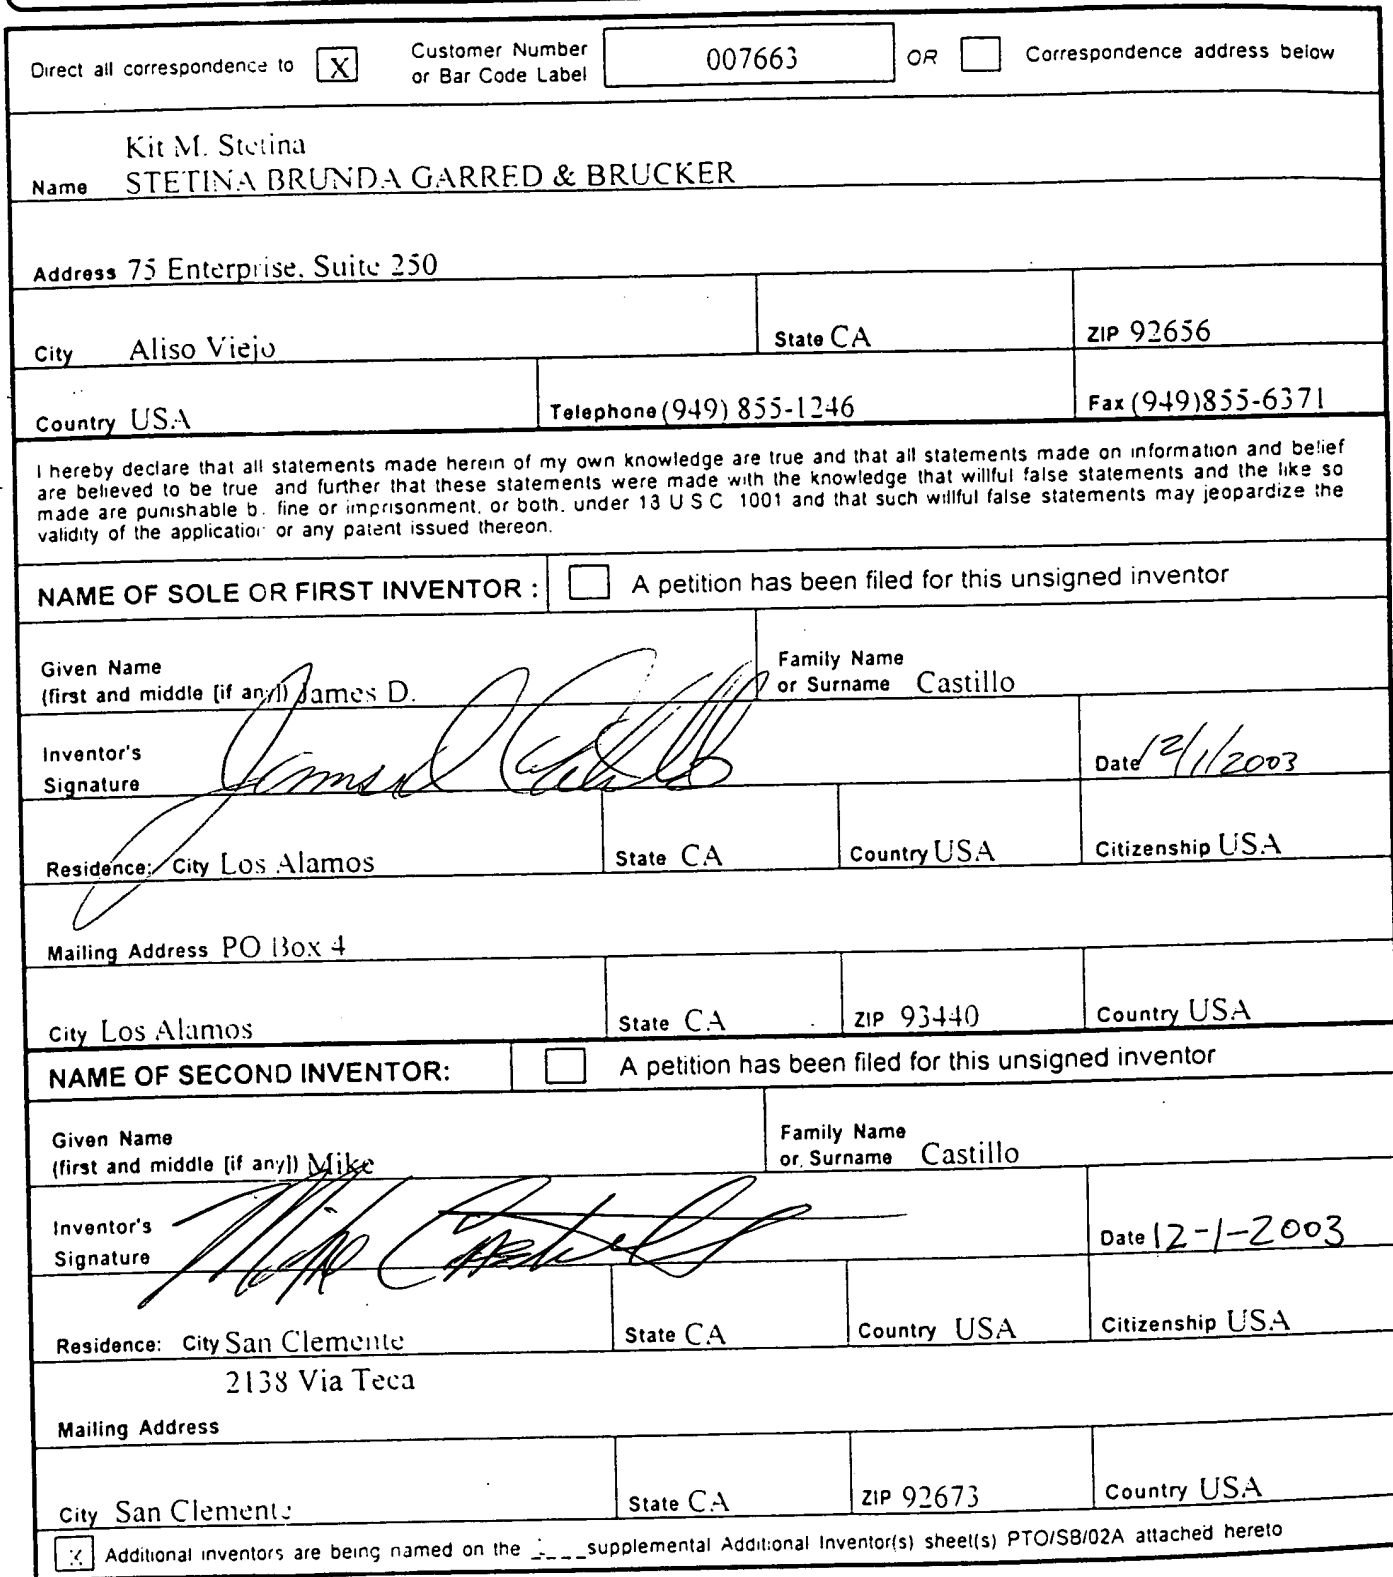 Direct all correspondence to [X] Customer Number or Bar Code Label 007663 OR Correspondence address below
Kit M. Stetina
Name STETINA BRUNDA GARRED & BRUCKER
Address 75 Enterprise, Suite 250
City Aliso Viejo State CA ZIP 92656
Country USA Telephone (949) 855-1246 Fax (949)855-6371
I hereby declare that all statements made herein of my own knowledge are true and that all statements made on information and belief
are believed to be true and further that these statements were made with the knowledge that willful false statements and the like so
made are punishable b. fine or imprisonment, or both, under 18 U S C 1001 and that such willful false statements may jeopardize the
validity of the application or any patent issued thereon.
NAME OF SOLE OR FIRST INVENTOR : A petition has been filed for this unsigned inventor
Given Name
(first and middle [if any]) James D.
Family Name
or Surname Castillo
Inventor's
Signature James D Castillo
Date 12/1/2003
Residence: City Los Alamos State CA Country USA Citizenship USA
Mailing Address PO Box 4
City Los Alamos State CA ZIP 93440 Country USA
NAME OF SECOND INVENTOR: A petition has been filed for this unsigned inventor
Given Name
(first and middle [if any]) Mike
Family Name
or Surname Castillo
Inventor's
Signature Mike Castillo
Date 12-1-2003
Residence: City San Clemente State CA Country USA Citizenship USA
2138 Via Teca
Mailing Address
City San Clemente State CA ZIP 92673 Country USA
[X] Additional inventors are being named on the supplemental Additional Inventor(s) sheet(s) PTO/SB/02A attached hereto